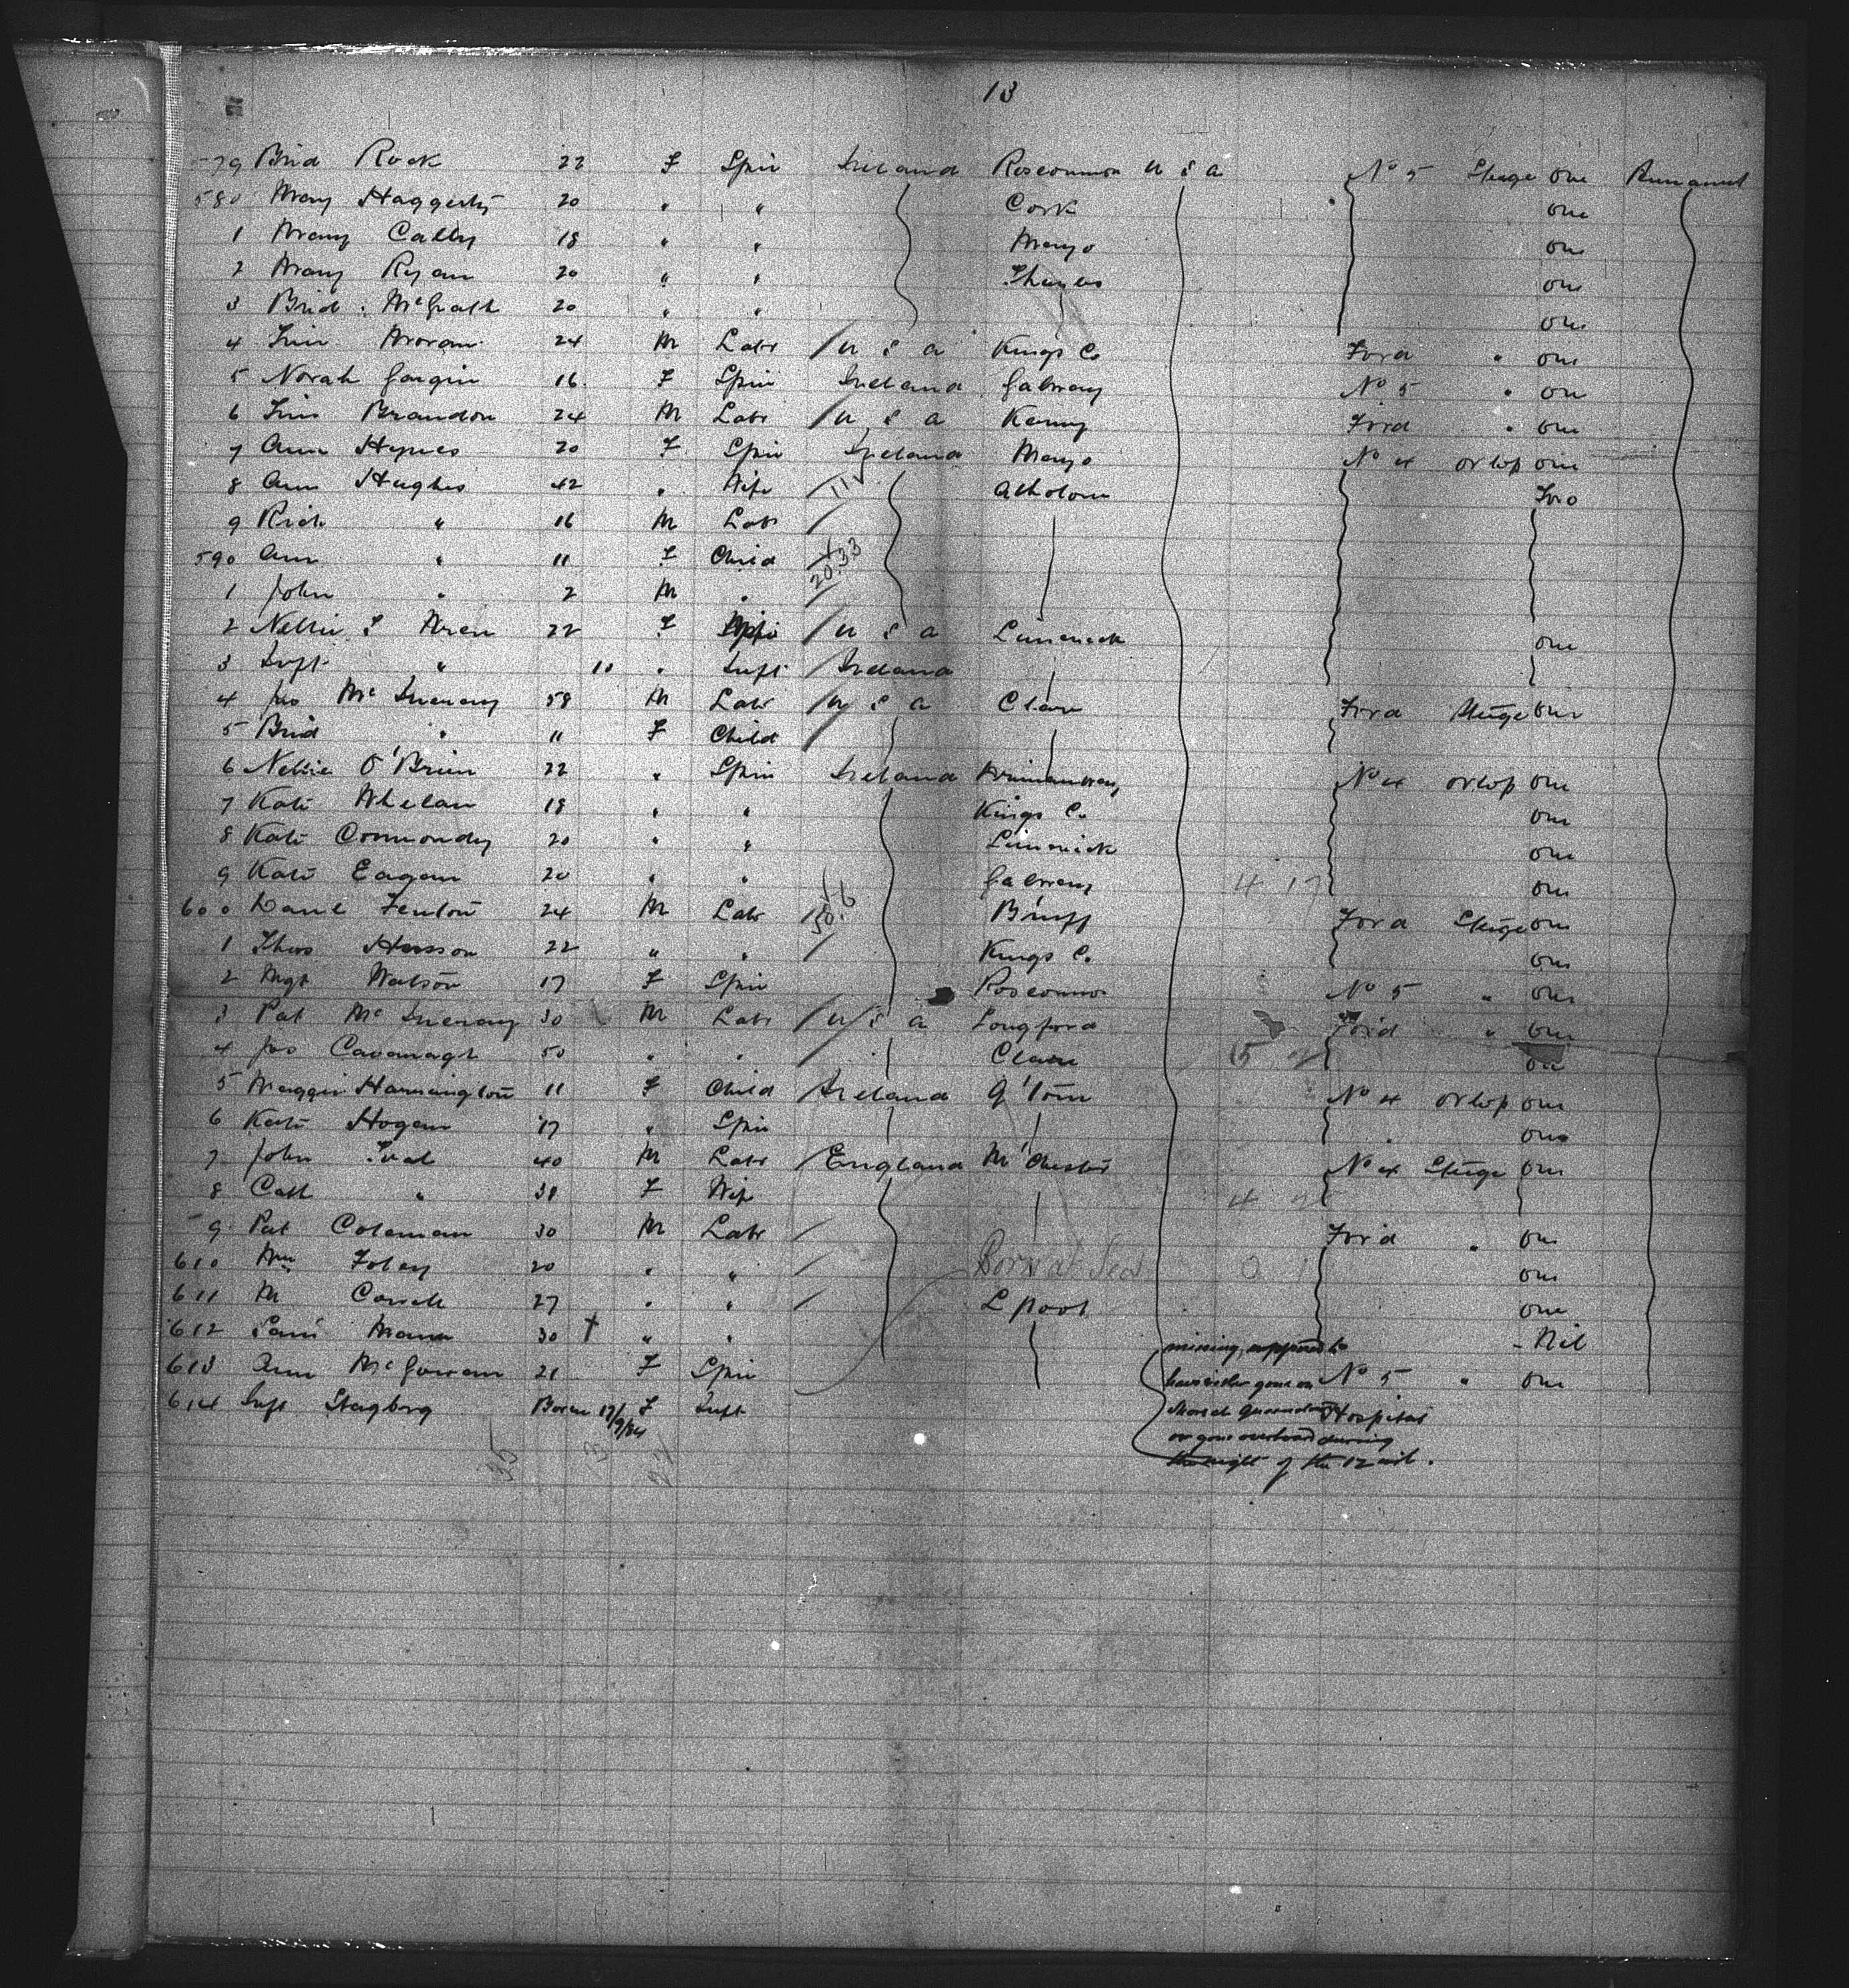 13
79 Brid Rock 22 F Spin Ireland Roscommon U S A No 5 Steage one Permanent
580 Mary Haggerty 20 " " Cork one
1 Mary Cally 18 " " Mayo one
2 Mary Ryan 20 " " Thurles one
3 Brid McGrath 20 " " one
4 Jim Moran 24 M Labr / U S A Kings Co Ford " one
5 Norah 16 F Spin Ireland Galway No 5 " one
6 Jim Brandon 24 M Labr / U S A Kerry Ford " one
7 Ann Hynes 20 F Spin Ireland Mayo No 4 orlop one
8 Ann Hughes 42 " Wife / Athlone Two
9 Rich " 16 M Labr /
590 Ann " 11 F Child 20.33
1 John " 2 M " /
2 Nellie 22 F / U S A Limerick one
3 Inft " 10 " Inft / Ireland
4 Jno Mc Inerney 58 M Labr / U S A Clare Ford Steage one
5 Brid " 11 F Child /
6 Nellie O'Brien 22 " Spin Ireland No 4 orlop one
7 Kate Whelan 18 " " Kings Co one
8 Kate 20 " " Limerick one
9 Kate Eagan 20 " " Galway 4 17 one
600 Danl Fenton 24 M Labr / Bruff Ford Steage one
1 Thos 22 " " / Kings Co one
2 Mgt Watson 17 F Spin Roscommon No 5 " one
3 Pat Mc Inerney 30 M Labr / U S A Longford Ford " one
4 Jno Cavanagh 50 " " / Clare 5 one
5 Maggie Harrington 11 F Child / Ireland Q'Town No 4 orlop one
6 Kate Hogan 17 " Spin " one
7 John 40 M Labr / England M'Chester No 4 Steage one
8 Cath " 38 F Wife 4
9 Pat Coleman 30 M Labr / Ford " one
610 Wm Foley 20 " " / Born at Sea 0 1 one
611 M 27 " " / L pool one
612 Mann 30 † " " - Nil
missing, supposed to
613 Ann McGowan 21 F Spin No 5 " one
have either gone on
614 Inft Stagborg Born 17/9/84 F Inft Hospital
shore at Queenstown
or gone overboard during
the night of the 12 inst.
35 3